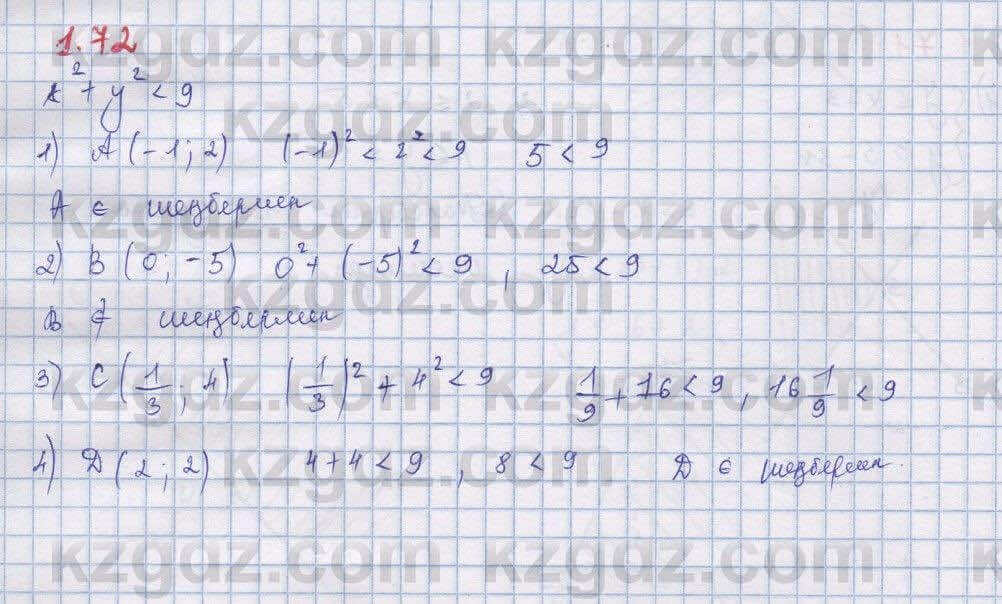 1.72
x² + y² < 9
1) A (-1; 2) (-1)² < 2² < 9 5 < 9
A ∈ шеңбермен
2) B (0; -5) 0² + (-5)² < 9, 25 < 9
B ∉ шеңбермен
3) C (1/3; 4) (1/3)² + 4² < 9 1/9 + 16 < 9, 16 1/9 < 9
4) D (2; 2) 4+4 < 9, 8 < 9 D ∈ шеңбермен.
kzgdz.com kzgdz.com
kzgdz.com
kzgdz.com kzgdz.com
kzgdz.com
kzgdz.com kzgdz.com
kzgdz.com
kzgdz.com kzgdz.com